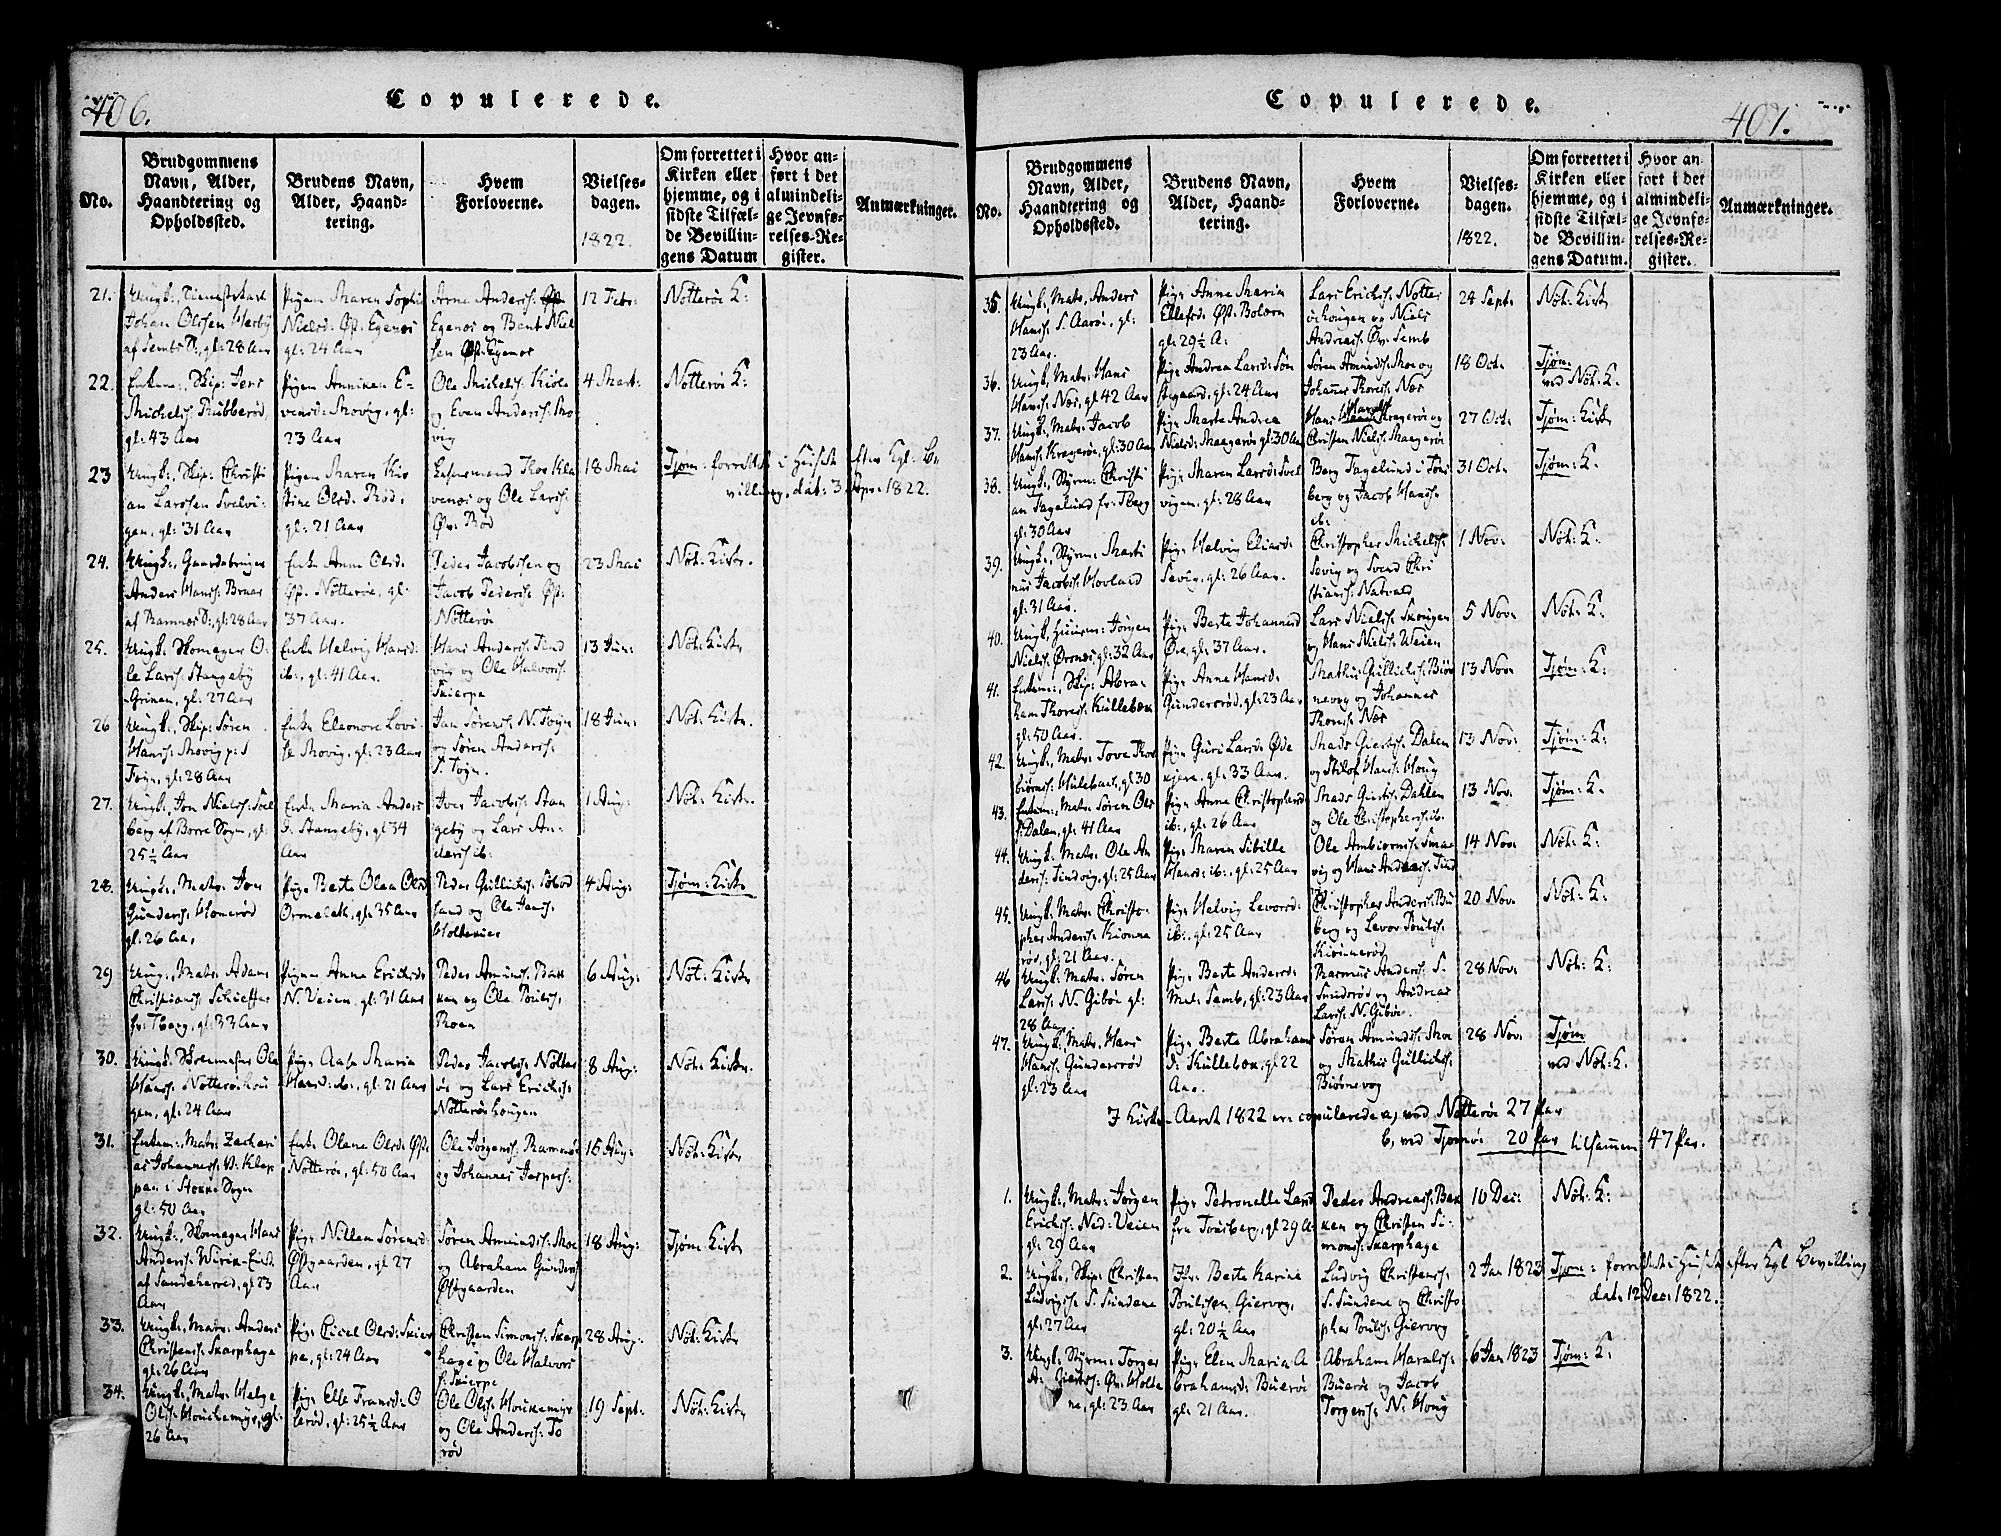 406.
Copulerede.
No.
Brudgommens Navn, Alder, Haandtering og Opholdssted.
Brudens Navn, Alder, Haandtering.
Hvem Forloverne.
Vielsesdagen.
1822.
Om forrettet i Kirken eller hjemme, og i sidste Tilfælde Bevillingens Datum
Hvor anført i det almindelige Jevnførelses-Register.
Anmærkninger.
21.
Johan Olsen
af Sembs S:, gl: 28 Aar
Pigen Maren Sophi
Nielsd: Øs: Egenæs
gl: 24 Aar
Arne Anders:
Egenæs og Bent Niel
sen Øs: Egenæs
12 Febr:
Nötteröe K:
22.
Enkem:, Skip: Jens
Michels: Rubberöd,
gl: 43 Aar
Pigen Anniken E-
vensd: Movig, gl:
23 Aar
Ole Michels: Kiöle
og Even Anders: Mo
vig
4 Mart:
Nötteröe K:
23
Ungk:, Skip: Christi
an Larssen Svelvi-
gen, gl: 31 Aar
Pigen Maren Kir
stine Olsd: Röd,
gl: 21 Aar
og Ole Lars:
Øv: Röd
18 Mai
Tjøm: forrettet i Huset efter Kgl: Be
villing, dat: 3 Apr: 1822.
24.
Anders Hans: Bruer
af Ramnes S:, gl: 28 Aar
Enke Anne Olsd:
Øs: Nötteröe, gl:
37 Aar.
Peder Jacobsen og
Jacob Peders: Øs:
Nötteröe
23 Mai
Nöt: Kirke.
25.
Ungk: Skomager O-
le Lars: Stangeby
Grinen, gl: 27 Aar
Enke Helvig Hansd:
ib:, gl: 41 Aar.
Hans Anders: Tind
vig og Ole Halvors:
Skierpe
13 Jun:
Nöt: Kirke
26
Ungk:, Skip: Sören
Hans: Movig p: S
Föyn, gl: 28 Aar
Enke Eleonore Lovi-
se Movig, gl: 23 Aar
Jan Sörens: N. Föyn
og Sören Anders:
S. Föyn.
18 Jun:
Nöt: Kirke.
27.
Ungk:, Jon Niels: Sol
berg af Borre Sogn, gl:
25½ Aar
Enke Maria Anders
d: Stangeby, gl 34
Aar
Iver Jacobs: Stan
geby og Lars An-
ders: ib:
1 Aug:
Nöt: Kirke.
28.
Ungk:, Matr: Jon
Gunders: Homeröd
gl: 26 Aar
Pige Berte Olea Olsd
Ormeleth, gl: 35 Aar
Peder Gullichs: Söbod
sand og Ole Jans:
Holtekiær
4 Aug:
Tjøm: Kirke
29
Ung:, Matr: Adam
Christians: Schieffer
fr: Tberg, gl: 33 Aar
Pigen Anne Erichsd:
N. Veien, gl: 31 Aar
Peder Amunds: Bak
ken og Ole Pouls:
Roen
6 Aug:
Nöt: Kirke
30.
Ungk: Skolemester Ole
Hans: Nötteröehou
gen, gl: 24 Aar
Pige Aase Maria
Hansd: ib:, gl: 21 Aar
Peder Jacobs: Nötter
öe og Lars Erichs:
Nötteröehougen
8 Aug:
Nöt: Kirke.
31.
Enkem:, Matr: Zachari
as Johannes: V: Klop
pen i Stokke Sogn
gl: 50 Aar
Enke Olane Olsd: Øst:
Nötteröe, gl: 50 Aar
Ole Jörgens: Ramnöe
og Johannes Jespers:
15 Aug:
Nöt: Kirke
32.
Ungk:, Skomager Hans
Anders:
af Sandeherred, gl 23
Aar
Pige Nillen Sörensd:
Østgaarden, gl 27
Aar
Sören Amunds: Moe
og Abraham Gunders:
Østgaarden
18 Aug:
Tjøm: Kirke
33.
Ungk:, Matr: Anders
Christens: Skarphage
gl: 26 Aar
Pige Olsd: Skier
pe, gl: 24 Aar
Christen Simons: Skarp
hage og Ole Halvor
s: Skierpe
28 Aug:
Nöt: Kirke
34.
Ungk:, Matr: Helge
Ols: Houkemyr, gl:
26 Aar
Pige Elle Fransd: O
leröd, gl: 25½ Aar
Ole Ols: Houkemyr
og Ole Anders: To
röd
19 Sept:
Nöt: Kirke
407.
Copulerede.
No.
Brudgommens Navn, Alder, Haandtering og Opholdssted.
Brudens Navn, Alder, Haandtering.
Hvem Forloverne.
Vielsesdagen.
1822.
Om forrettet i Kirken eller hjemme, og i sidste Tilfælde Bevillingens Datum.
Hvor anført i det almindelige Jevnførelses-Register.
Anmærkninger.
35.
Ungk:, Matr: Anders
Hans: S. Aaröe, gl:
23 Aar.
Pige Anne Maria
Ellefsd: Øst: Bolærn
gl: 29½ A:
Lars Erichs: Nötter
öehougen og Niels
Andreas: Øv: Semb
24 Sept:
Nöt: Kirke
36.
Ungk: Matr: Hans
Hans: Næs, gl 42 Aar
Pige Andrea Larsd: Søn
stegaard, gl: 24 Aar
Sören Amunds: Moe og
Johannes Thores: Næs
18 Oct:
Tjøm:
ved Nöt: K.
37.
Ungk: Matr: Jacob
Hans: Krageröe, gl: 30 Aar
Pige Marte Andrea
Nielsd: Mangeröe gl: 30 Aar
Hans Krageröe og
Christen Niels: Mangeröe
27 Oct:
Tjøm: Kirke
38.
Ungk:, Styrm: Christi
an Fagelund fr: Tberg
gl: 30 Aar
Pige Maren Larsd: Svel
vigen, gl: 28 Aar
Berg Fagelund i Töns
berg og Jacob Hans:
ib:
31 Oct:
Tjøm: K.
39.
Ungk:, Styrm: Marti
nus Jacobs: Hovland
gl: 31 Aar.
Pige Helvig Eliasd:
Sevig, gl: 26 Aar.
Christopher Michels:
Sevig og Svend Chri
stians: Natvald
1 Nov:
Nöt: K.
40.
Ungk, Huusm: Jörgen
Niels: Ørsnes, gl: 32 Aar
Pige Berte Johannesd
Øre, gl: 37 Aar.
Lars Niels: Skougen
og Hans Niels: Veien
5 Nov:
Nöt: K:
41.
Enkem:, Skip: Abra-
ham Thores: Kullebön
gl: 50 Aar.
Pige Anne Hansd:
Gunderöd, gl: 23 Aar
Mathis Gullichs: Biör
nevog og Johannes
Thores: Næs
13 Nov:
Tjøm: K:
42.
Ungk: Matr: Tove Thor
biörns: Mülebach, gl 30
Pige Guri Larsd: Øde
kjære, gl: 33 Aar.
Mads Gierts: Dalen
og Hans: Houg
13 Nov:
Tjøm: K:
43.
Enkem:, Matr: Sören Ols
s: Dalen, gl: 41 Aar
Pige Anne Christophersd
ib:, gl: 26 Aar
Mads Gierts: Dahlen
og Ole Christophers: ib:
13 Nov:
Tjøm: K.
44.
Ungk: Matr: Ole An
ders: Tindvig, gl: 25 Aar
Pige Maren Sibille
Hansd: ib:, gl: 25 Aar
Ole Ambiörns: Smaa
vig og Hans Anders: Tind
14 Nov:
Nöt: K:
45.
Ungk: Matr: Christo-
pher Anders: Kiönne
röd, gl: 21 Aar.
Pige Helvig Levorsd:
ib:, gl: 25 Aar
Christopher Anders: Bu
berg og Levor Pouls:
Kiönneröd
20 Nov:
Nöt: K:
46
Ungk: Matr: Sören
Lars: N. Giböe gl:
28 Aar
Pige Berte Andersd:
Mel: Semb, gl: 23 Aar
Rasmus Anders: S.
Smidsröd og Andreas
Lars: N. Giböe.
28 Nov:
Nöt: K:
47.
Ungk: Matr, Hans
Hans: Gunderöd
gl: 23 Aar
Pige Berte Abrahams
d: Kullebön, gl 22
Aar.
Sören Amunds: Moe
og Mathis Gullichs:
Biörnevog
28 Nov:
Tjøm
ved Nöt: K.
I Kirke-Aaret 1822 ere copulerede a, ved Nötteröe 27 Par
b, ved Tjømöe 20 Par tilsammen 47 Par.
1.
Ungk:, Matr: Jörgen
Erichs: Ned: Veien
gl: 29 Aar
Pige Petronelle Lund
fra Tönsberg, gl 29 A:
Peder Andreas: Bak
ken og Christen Si-
mons: Skarphage
10 Dec:
Nöt: K:
2.
Ungk:, Skip: Christen
Ludvigs: S. Sundene
gl: 27 Aar
Jfr: Berte Karine
Poulsen Giervog,
gl: 20½ Aar
Ludvig Christens:
S. Sundene og Christo
pher Pouls: Giervog
2 Jan 1823
Tjøm: forrettet i Huset efter Kgl Bevilling
dat: 12 Dec: 1822.
3.
Ungk: Styrm: Torger
Gierts: Øv: Holte
ne, gl: 23 Aar
Pige Elen Maria A
brahamsd: Bueröe
gl: 21 Aar.
Abraham Haralds:
Bueröe og Jacob
Torgers: N. Houg
6 Jan 1823
Tjøm: K: